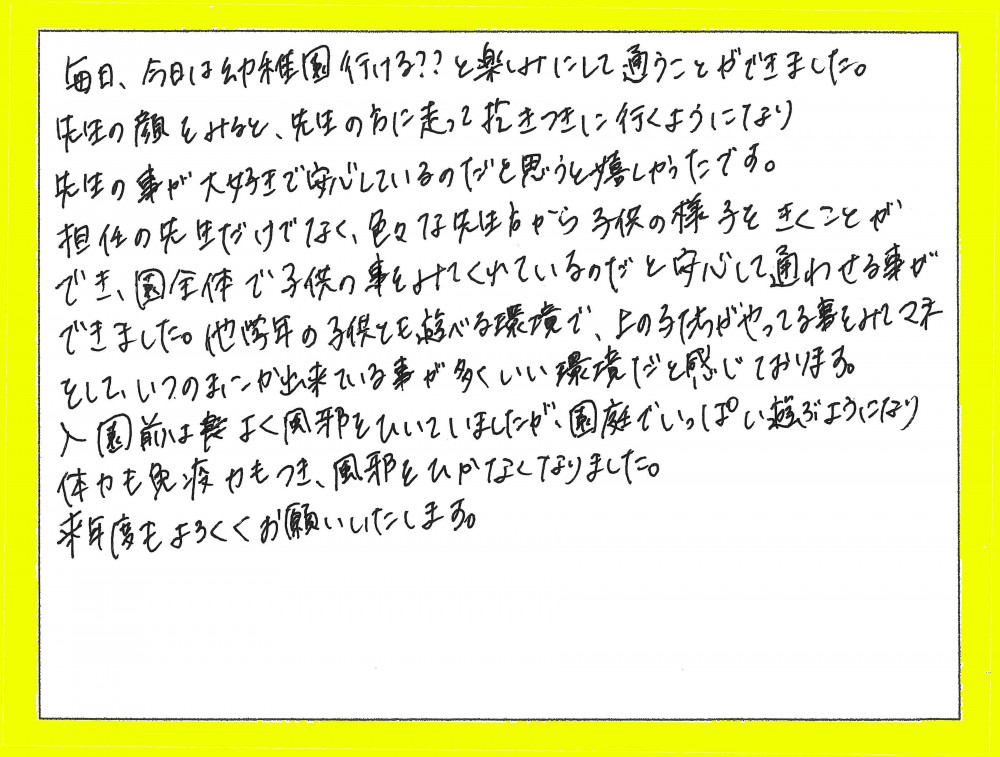 毎日、今日は幼稚園行ける??と楽しみにして通うことができました。
先生の顔をみると、先生の方に走って抱きつきに行くようになり
先生の事が大好きで安心しているのだと思うと嬉しかったです。
担任の先生だけでなく、色々な先生方から子供の様子をきくことが
でき、園全体で子供の事をみてくれているのだと安心して通わせる事が
できました。他学年の子供とも遊べる環境で、上の子たちがやってる事をみてマネ
をして、いつのまにか出来ている事が多くいい環境だと感じております。
入園前はよく風邪をひいていましたが、園庭でいっぱい遊ぶようになり
体力も免疫力もつき、風邪をひかなくなりました。
来年度もよろしくお願いいたします。